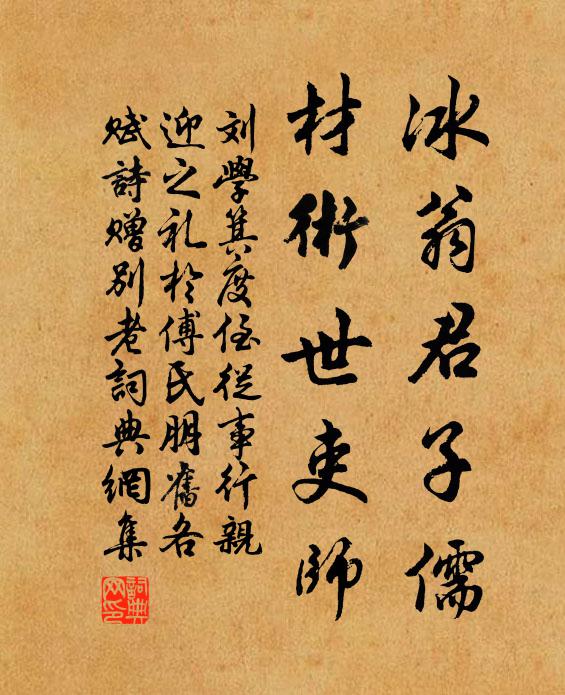 冰翁君子儒
材術世吏師
刘學箕度侄從事行親
迎之礼於傅氏朋舊各
赋詩赠别老詞典網集
詞典网印